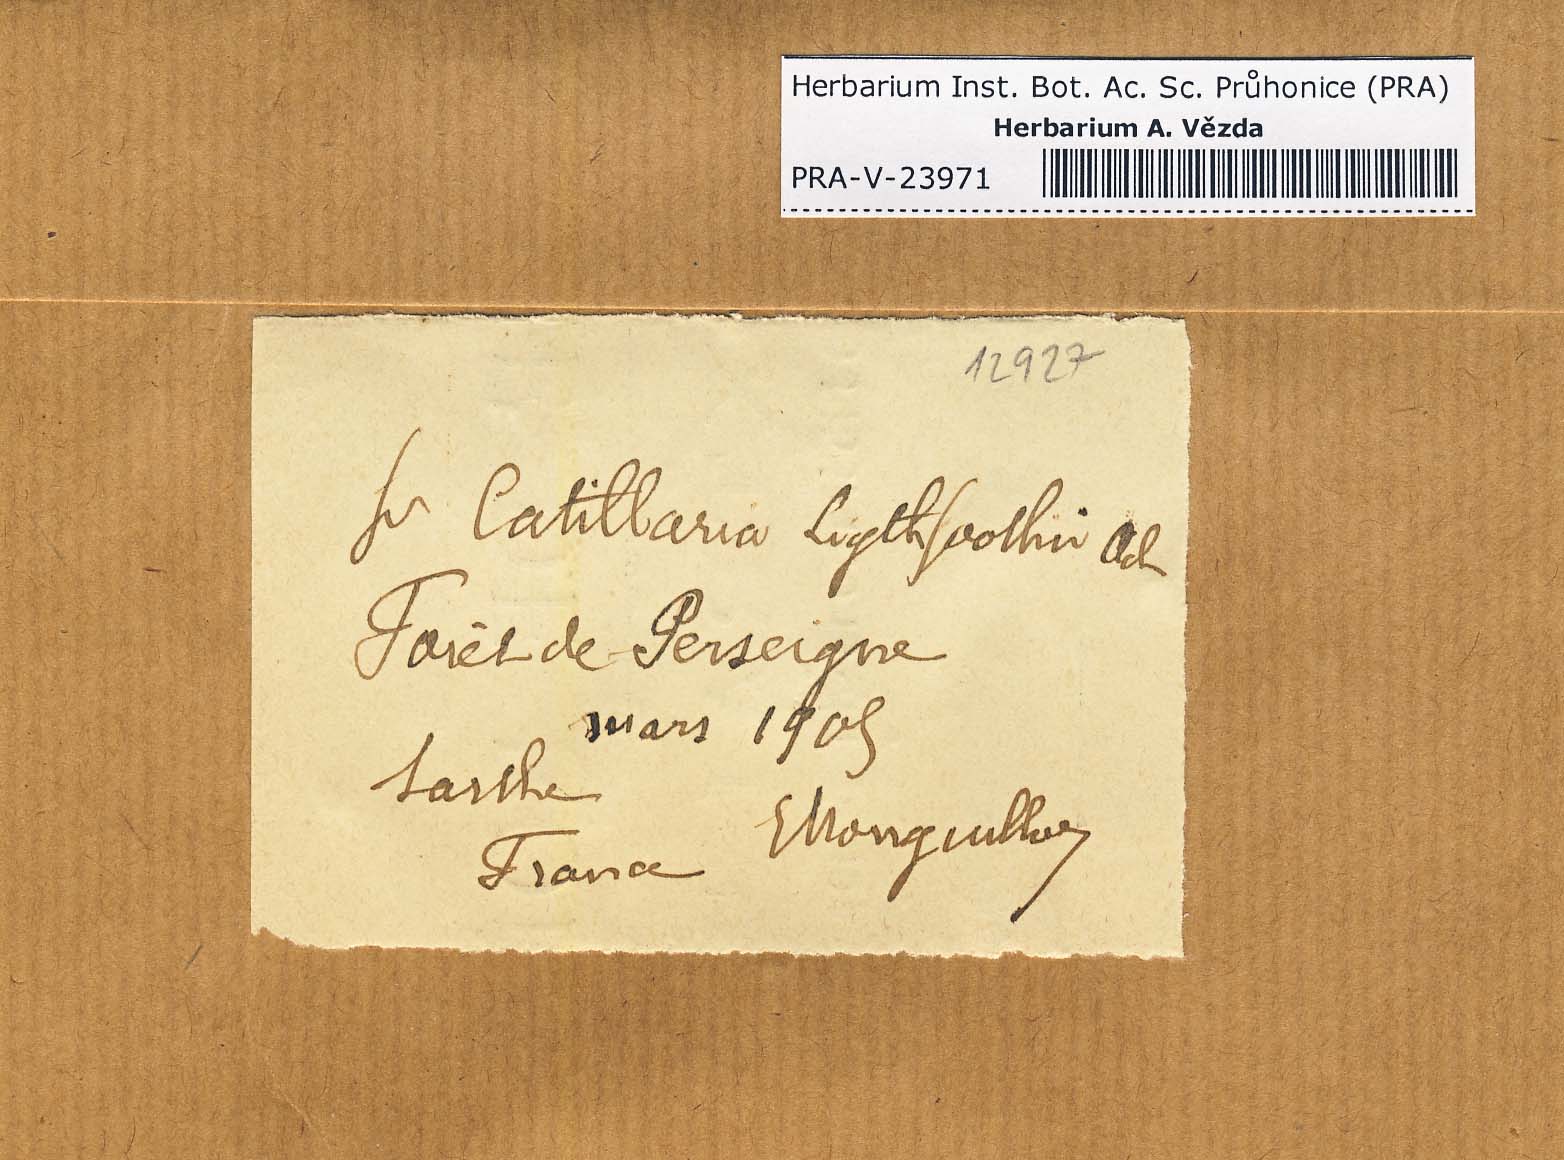 Herbarium Inst. Bot. Ac. Sc. Průhonice (PRA)
Herbarium A. Vězda
PRA-V-23971
12927
Catillaria Ligthfoothii Ach
Forêt de Perseigne
mars 1905
Sarthe
France
EMonguillon